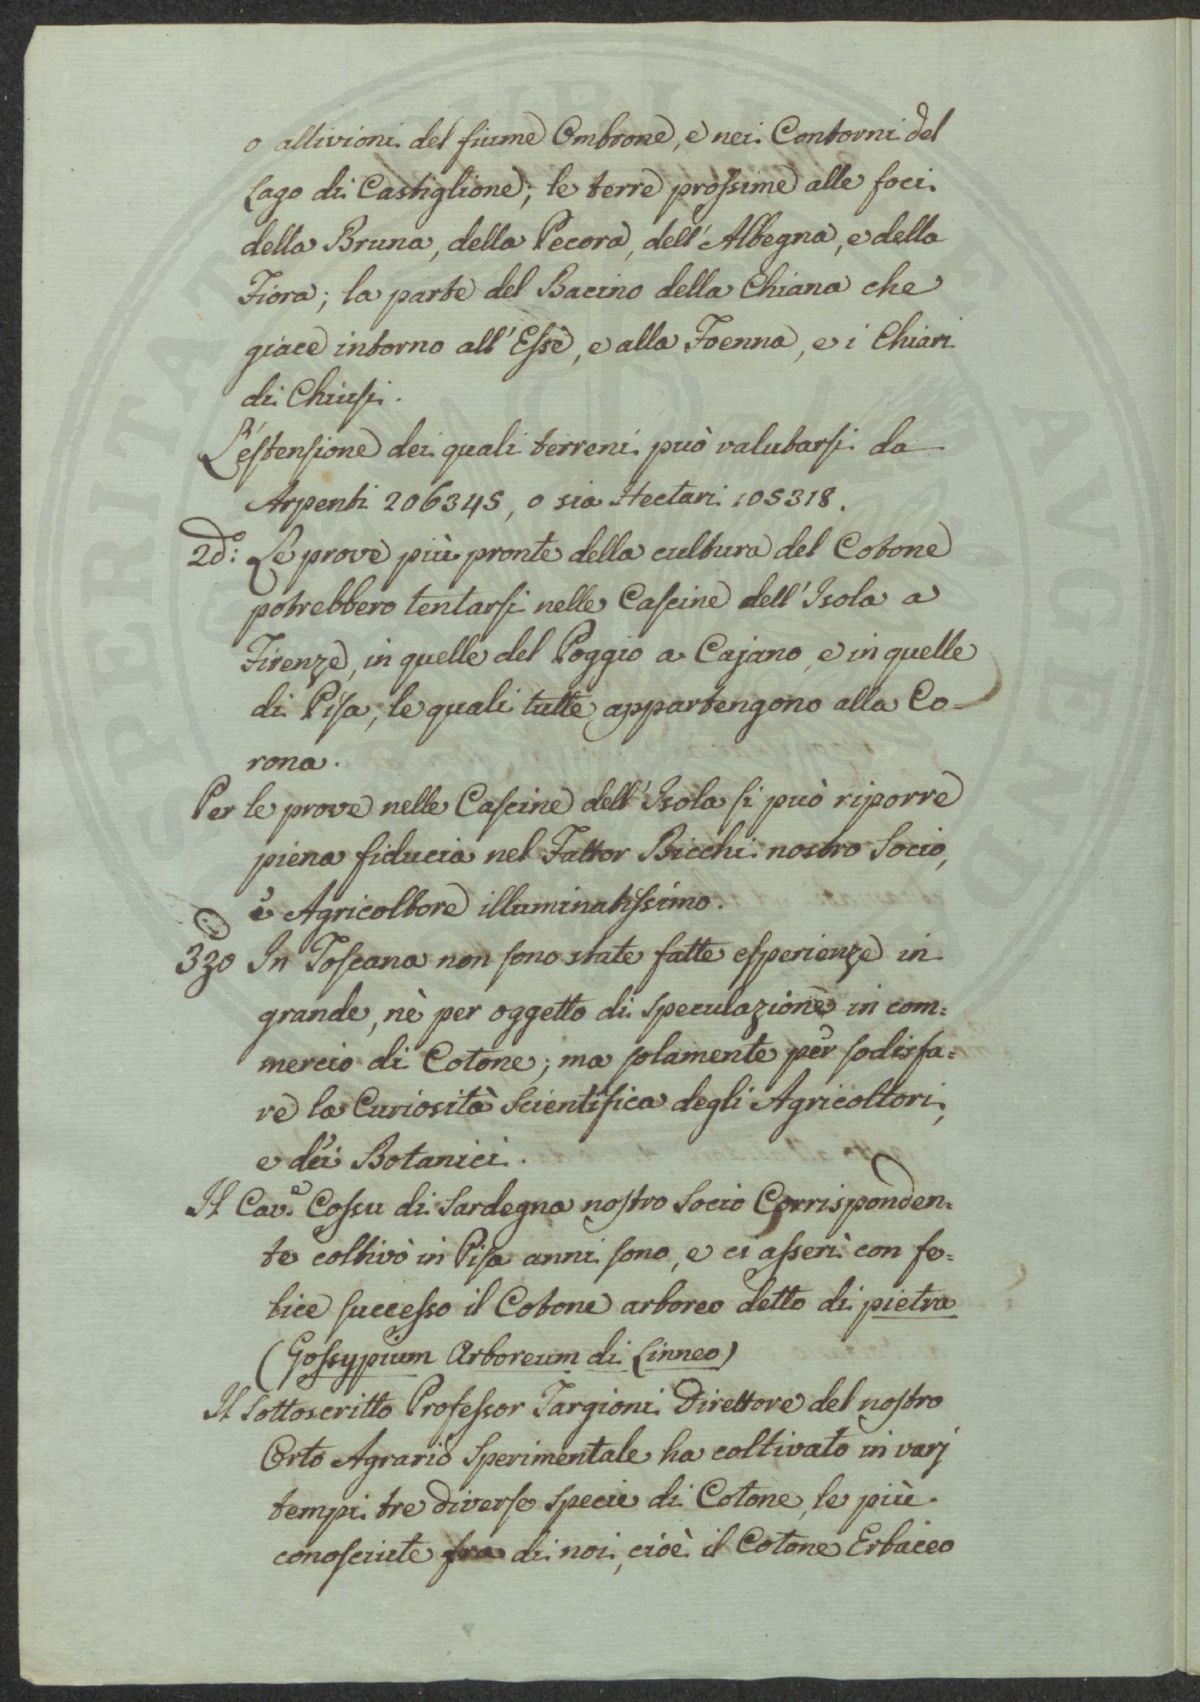 o allivioni del fiume Ombrone, e nei Contorni del
Lago di Castiglione; le terre prossime alle foci
della Bruna, della Pecora, dell'Albegna, e della
Fiora; la parte del Bacino della Chiana che
giace intorno all'Esse, e alla Foenna, e i Chiari
di Chiusi.
L'estensione dei quali terreni può valutarsi da
Arpenti 206345, o sia Hectari 105318.
2do: Le prove più pronte della cultura del Cotone
potrebbero tentarsi nelle Cascine dell'Isola a
Firenze, in quelle del Poggio a Cajano, e in quelle
di Pisa, le quali tutte appartengono alla Co-
rona.
Per le prove nelle Cascine dell'Isola si può riporre
piena fiducia nel Fattor Bicchi nostro Socio,
e Agricoltore illuminatissimo.
3zo In Toscana non sono state fatte esperienze in
grande, nè per oggetto di speculazione in com=
mercio di Cotone; ma solamente per sodisfa=
re la Curiosità Scientifica degli Agricoltori,
e dei Botanici.
Il Cav.e Cossu di Sardegna nostro Socio Corrisponden=
te coltivò in Pisa anni sono, e ci asserì con fe=
lice successo il Cotone arboreo detto di pietra
(Gossypium Arboreum di Linneo)
Il Sottoscritto Professor Targioni Direttore del nostro
Orto Agrario Sperimentale ha coltivato in varj
tempi tre diverse specie di Cotone, le più
conosciute fra di noi, cioè il Cotone Erbaceo
PERITATE PUBLI AUGET